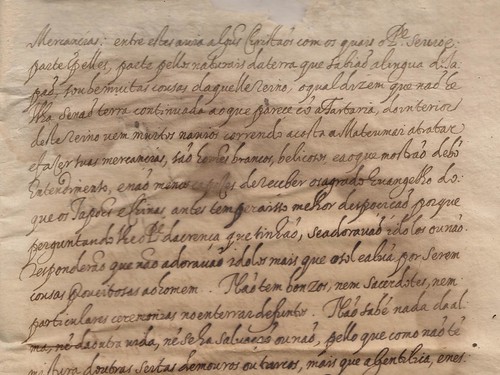 Mercancias: entre estes avia algũs Cristãos com os quais o Pe. se
parte p elles, parte pellos naturais da terra que sabião a lingua d Ja
pão, soube muitas cousas daquelle reino, o qual dizem que não he
Ilha senão terra continuada ao que parece cõ a Tartaria, do interior
deste reino vem muitos navios correndo a costa a Matsumai a tratar
e fazer suas mercancias, são homẽs brancos, belicosos, e ao que mostrão de bõ
entendimento, e não menos de receber o sagrado Euangelho do
que os Japões e Chinas, antes tem pera isso melhor desposição porque
perguntandolhe o Pe. da crença que tinhão, se adoravão idolos ou não
Responderão que não adoravão idolos mais que o sol e a lũa, por serem
cousas proveitosas ao homem. Não tem bonzos, nem sacerdotes, nem
particulares ceremonias no enterrar defuntos. Não sabẽ nada da al
ma, nẽ da outra vida, nẽ se ha salvação ou não, pello que como não tẽ
mistura doutras seitas de mouros ou turcos, mais que a Gentilica, e nes